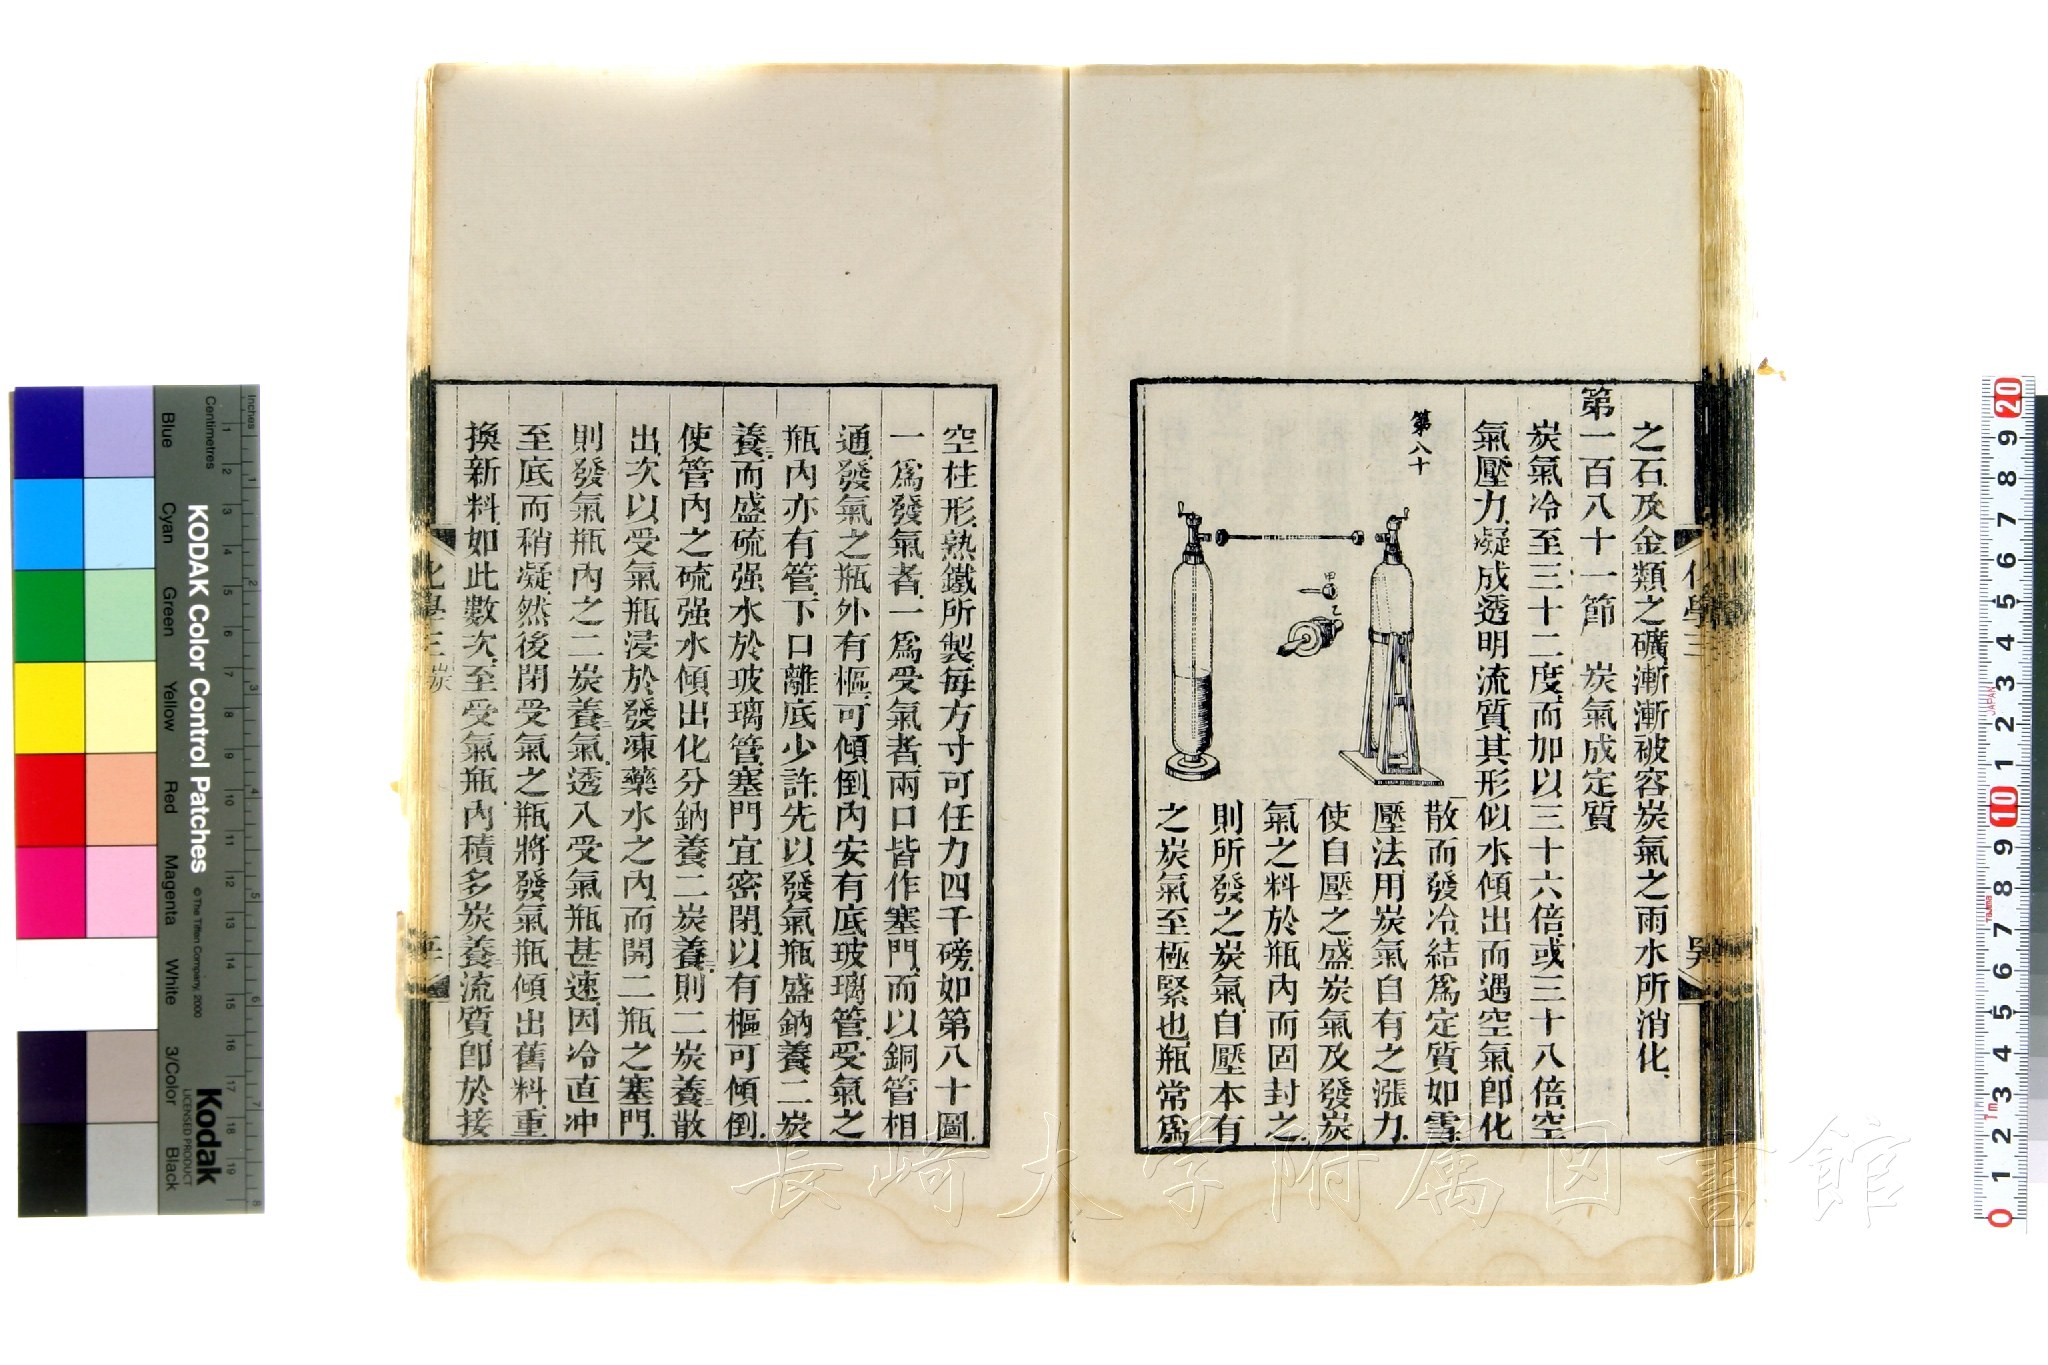 之石及金類之礦漸漸被容炭氣之雨水所消化
第一百八十一節　炭氣成定質
炭氣冷至三十二度而加以三十六倍或三十八倍空
氣壓力凝成透明流質其形似水傾出而遇空氣卽化
第八十
甲
乙
散而發冷結爲定質如雪
壓法用炭氣自有之漲力
使自壓之盛炭氣及發炭
氣之料於瓶內而固封之
則所發之炭氣自壓本有
之炭氣至極緊也瓶常爲
化學三
空柱形熟鐵所製每方寸可任力四千磅如第八十圖
一爲發氣者一爲受氣者兩口皆作塞門而以銅管相
通發氣之瓶外有樞可傾倒內安有底玻璃管受氣之
瓶內亦有管下口離底少許先以發氣瓶盛鈉養二炭
養而盛硫强水於玻璃管塞門宜密閉以有樞可傾倒
使管內之硫强水傾出化分鈉養二炭養則二炭養散
出次以受氣瓶浸於發凍藥水之內而開二瓶之塞門
則發氣瓶內之二炭養氣透入受氣瓶甚速因冷直冲
至底而稍凝然後閉受氣之瓶將發氣瓶傾出舊料重
換新料如此數次至受氣瓶內積多炭養流質卽於接
化學三 炭
長崎大学附属図書館
KODAK Color Control Patches
© The Tiffen Company, 2000
Kodak
LICENSED PRODUCT
Inches
Centimetres
Blue
Cyan
Green
Yellow
Red
Magenta
White
3/Color
Black
1 2 3 4 5 6 7 8 9 10 11 12 13 14 15 16 17 18 19
1 2 3 4 5 6 7 8
0 1 2 3 4 5 6 7 8 9 10 1 2 3 4 5 6 7 8 9 20
JAPAN